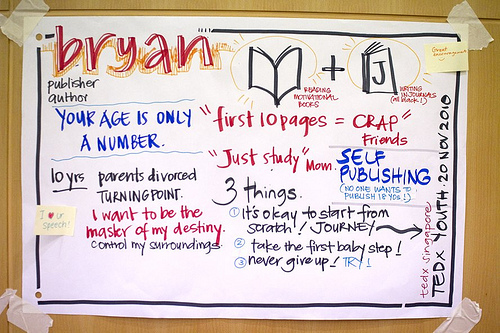 bryan
publisher
author
YOUR AGE IS ONLY
A NUMBER.
10 yrs parents divorced
TURNING POINT.
I want to be the
master of my destiny.
control my surroundings
I ♥ ur
speech!
+
J
READING
MOTIVATIONAL
BOOKS
WRITING
IN JOURNALS
Great
encouragement
"first 10 pages = CRAP"
Friends
"Just study" Mom.
SELF
PUBLISHING
(NO ONE WANTS TO
PUBLISH 18 YOs!)
3 things.
① it's okay to start from
scratch! JOURNEY
② take the first baby step!
③ never give up! TRY!
tedx singapore
TEDX YOUTH. 20 NOV 2010